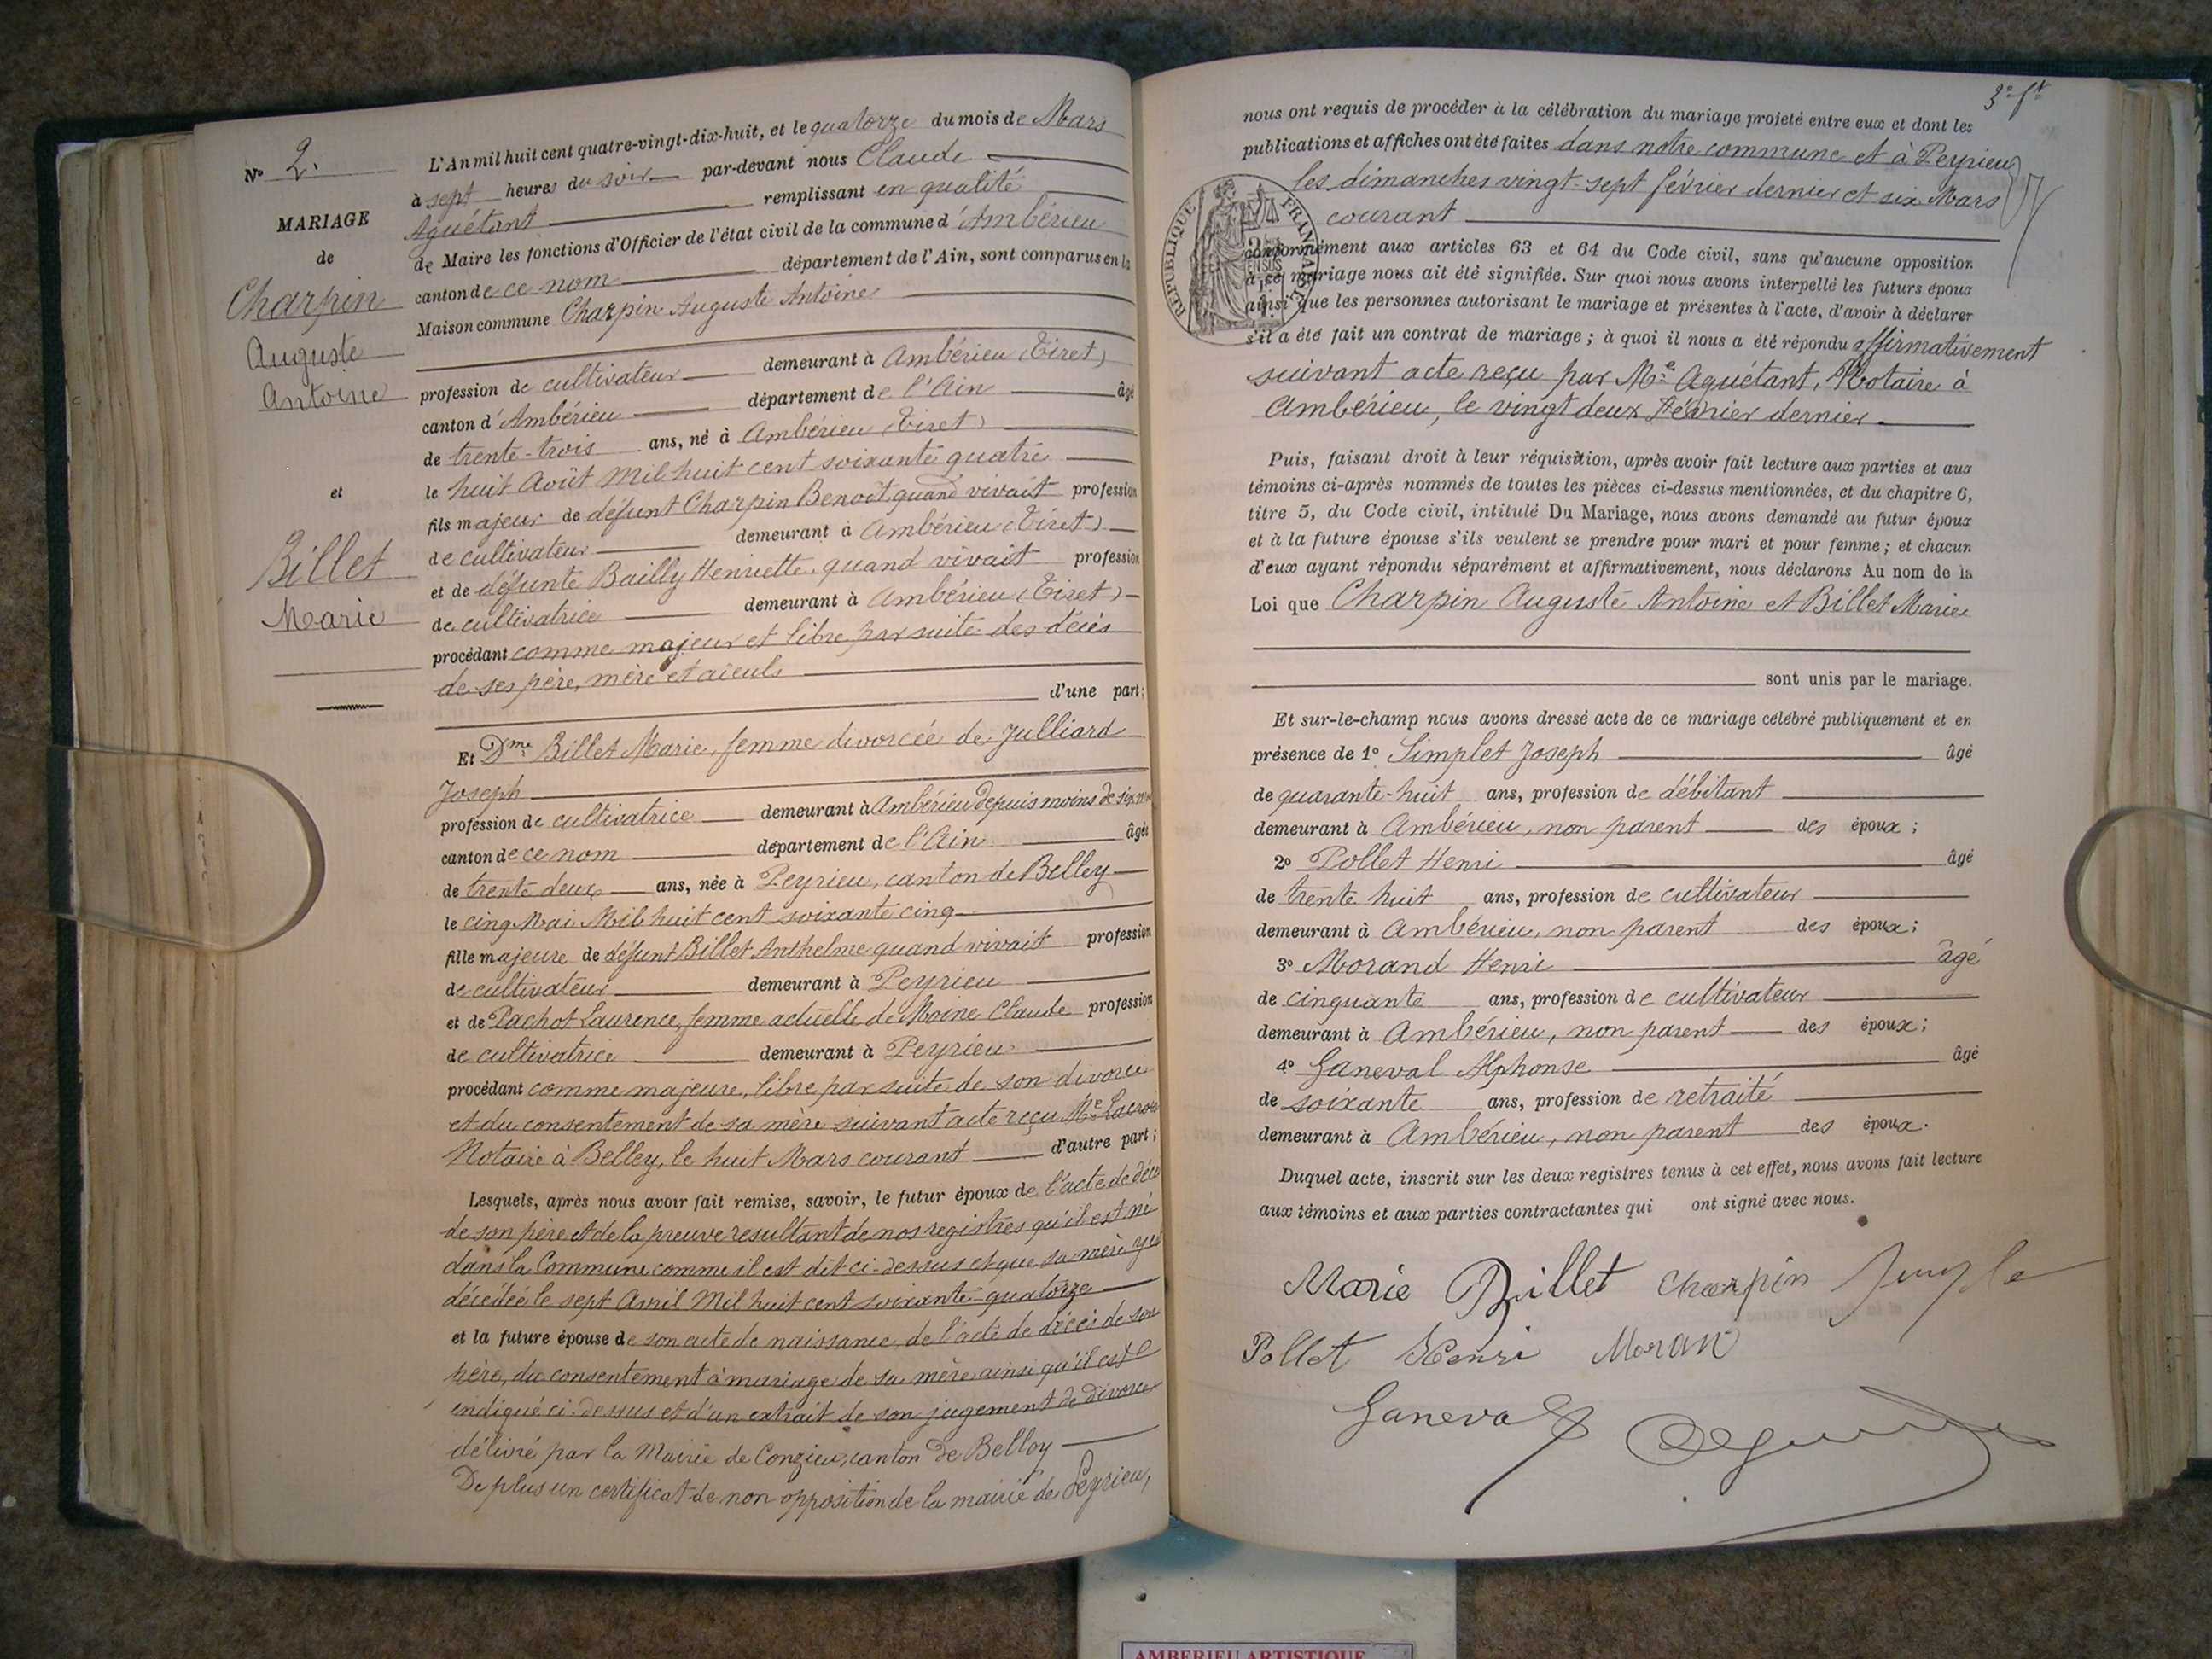 N° 2.
MARIAGE
de
Charpin
Auguste
Antoine
et
Billet
Marie
L'An mil huit cent quatre-vingt-dix-huit, et le quatorze du mois de Mars
à sept heures du soir par-devant nous Claude
Aguétant remplissant en qualité
de Maire les fonctions d'Officier de l'état civil de la commune d'Ambérieu
canton de ce nom département de l'Ain, sont comparus en la
Maison commune Charpin Auguste Antoine
profession de cultivateur demeurant à Ambérieu (Tiret)
canton d'Ambérieu département de l'Ain âgé
de trente-trois ans, né à Ambérieu (Tiret)
le huit Août Mil huit cent soixante quatre
fils majeur de défunt Charpin Benoît quand vivait profession
de cultivateur demeurant à Ambérieu (Tiret)
et de défunte Bailly Henriette, quand vivait profession
de cultivatrice demeurant à Ambérieu (Tiret)
procédant comme majeur et libre par suite des décès
de ses père, mère et aïeuls
d'une part;
Et Dme Billet Marie, femme divorcée de Julliard
Joseph
profession de cultivatrice demeurant à Ambérieu depuis moins de six mois
canton de ce nom département de l'Ain âgée
de trente deux ans, née à Peyrieu, canton de Belley
le cinq Mai Mil huit cent soixante cinq
fille majeure de défunt Billet Anthelme quand vivait profession
de cultivateur demeurant à Peyrieu
et de Pachot Laurence, femme actuelle de Moine Claude profession
de cultivatrice demeurant à Peyrieu
procédant comme majeure, libre par suite de son divorce
et du consentement de sa mère suivant acte reçu Me Lacroix
Notaire à Belley, le huit Mars courant d'autre part;
Lesquels, après nous avoir fait remise, savoir, le futur époux de l'acte de décès
de son père et de la preuve resultant de nos registres qu'il est né
dans la Commune comme il est dit ci-dessus et que sa mère y est
décédée le sept Avril Mil huit cent soixante-quatorze
et la future épouse de son acte de naissance, de l'acte de décès de son
père, du consentement à mariage de sa mère ainsi qu'il est
indiqué ci-dessus et d'un extrait de son jugement de divorce
délivré par la Mairie de Conzieu, canton de Belley
De plus un certificat de non opposition de la mairie de Peyrieu,
nous ont requis de procéder à la célébration du mariage projeté entre eux et dont les
publications et affiches ont été faites dans notre commune et à Peyrieu
les dimanches vingt-sept février dernier et six Mars
courant
RÉPUBLIQUE FRANÇAISE
conformément aux articles 63 et 64 du Code civil, sans qu'aucune opposition
à ce mariage nous ait été signifiée. Sur quoi nous avons interpellé les futurs époux
ainsi que les personnes autorisant le mariage et présentes à l'acte, d'avoir à déclarer
s'il a été fait un contrat de mariage; à quoi il nous a été répondu affirmativement
suivant acte reçu par Me Aguétant, Notaire à
Ambérieu, le vingt deux Février dernier
Puis, faisant droit à leur réquisition, après avoir fait lecture aux parties et aux
témoins ci-après nommés de toutes les pièces ci-dessus mentionnées, et du chapitre 6,
titre 5, du Code civil, intitulé Du Mariage, nous avons demandé au futur époux
et à la future épouse s'ils veulent se prendre pour mari et pour femme; et chacun
d'eux ayant répondu séparément et affirmativement, nous déclarons Au nom de la
Loi que Charpin Auguste Antoine et Billet Marie
sont unis par le mariage.
Et sur-le-champ nous avons dressé acte de ce mariage célébré publiquement et en
présence de 1° Simplet Joseph âgé
de quarante-huit ans, profession de débitant
demeurant à Ambérieu, non parent des époux;
2° Pollet Henri âgé
de trente huit ans, profession de cultivateur
demeurant à Ambérieu, non parent des époux;
3° Morand Henri âgé
de cinquante ans, profession de cultivateur
demeurant à Ambérieu, non parent des époux;
4° Ganeval Alphonse âgé
de soixante ans, profession de retraité
demeurant à Ambérieu, non parent des époux.
Duquel acte, inscrit sur les deux registres tenus à cet effet, nous avons fait lecture
aux témoins et aux parties contractantes qui ont signé avec nous.
Marie Billet Charpin
Pollet Henri Moran
Ganeval
AMBERIEU ARTISTIQUE